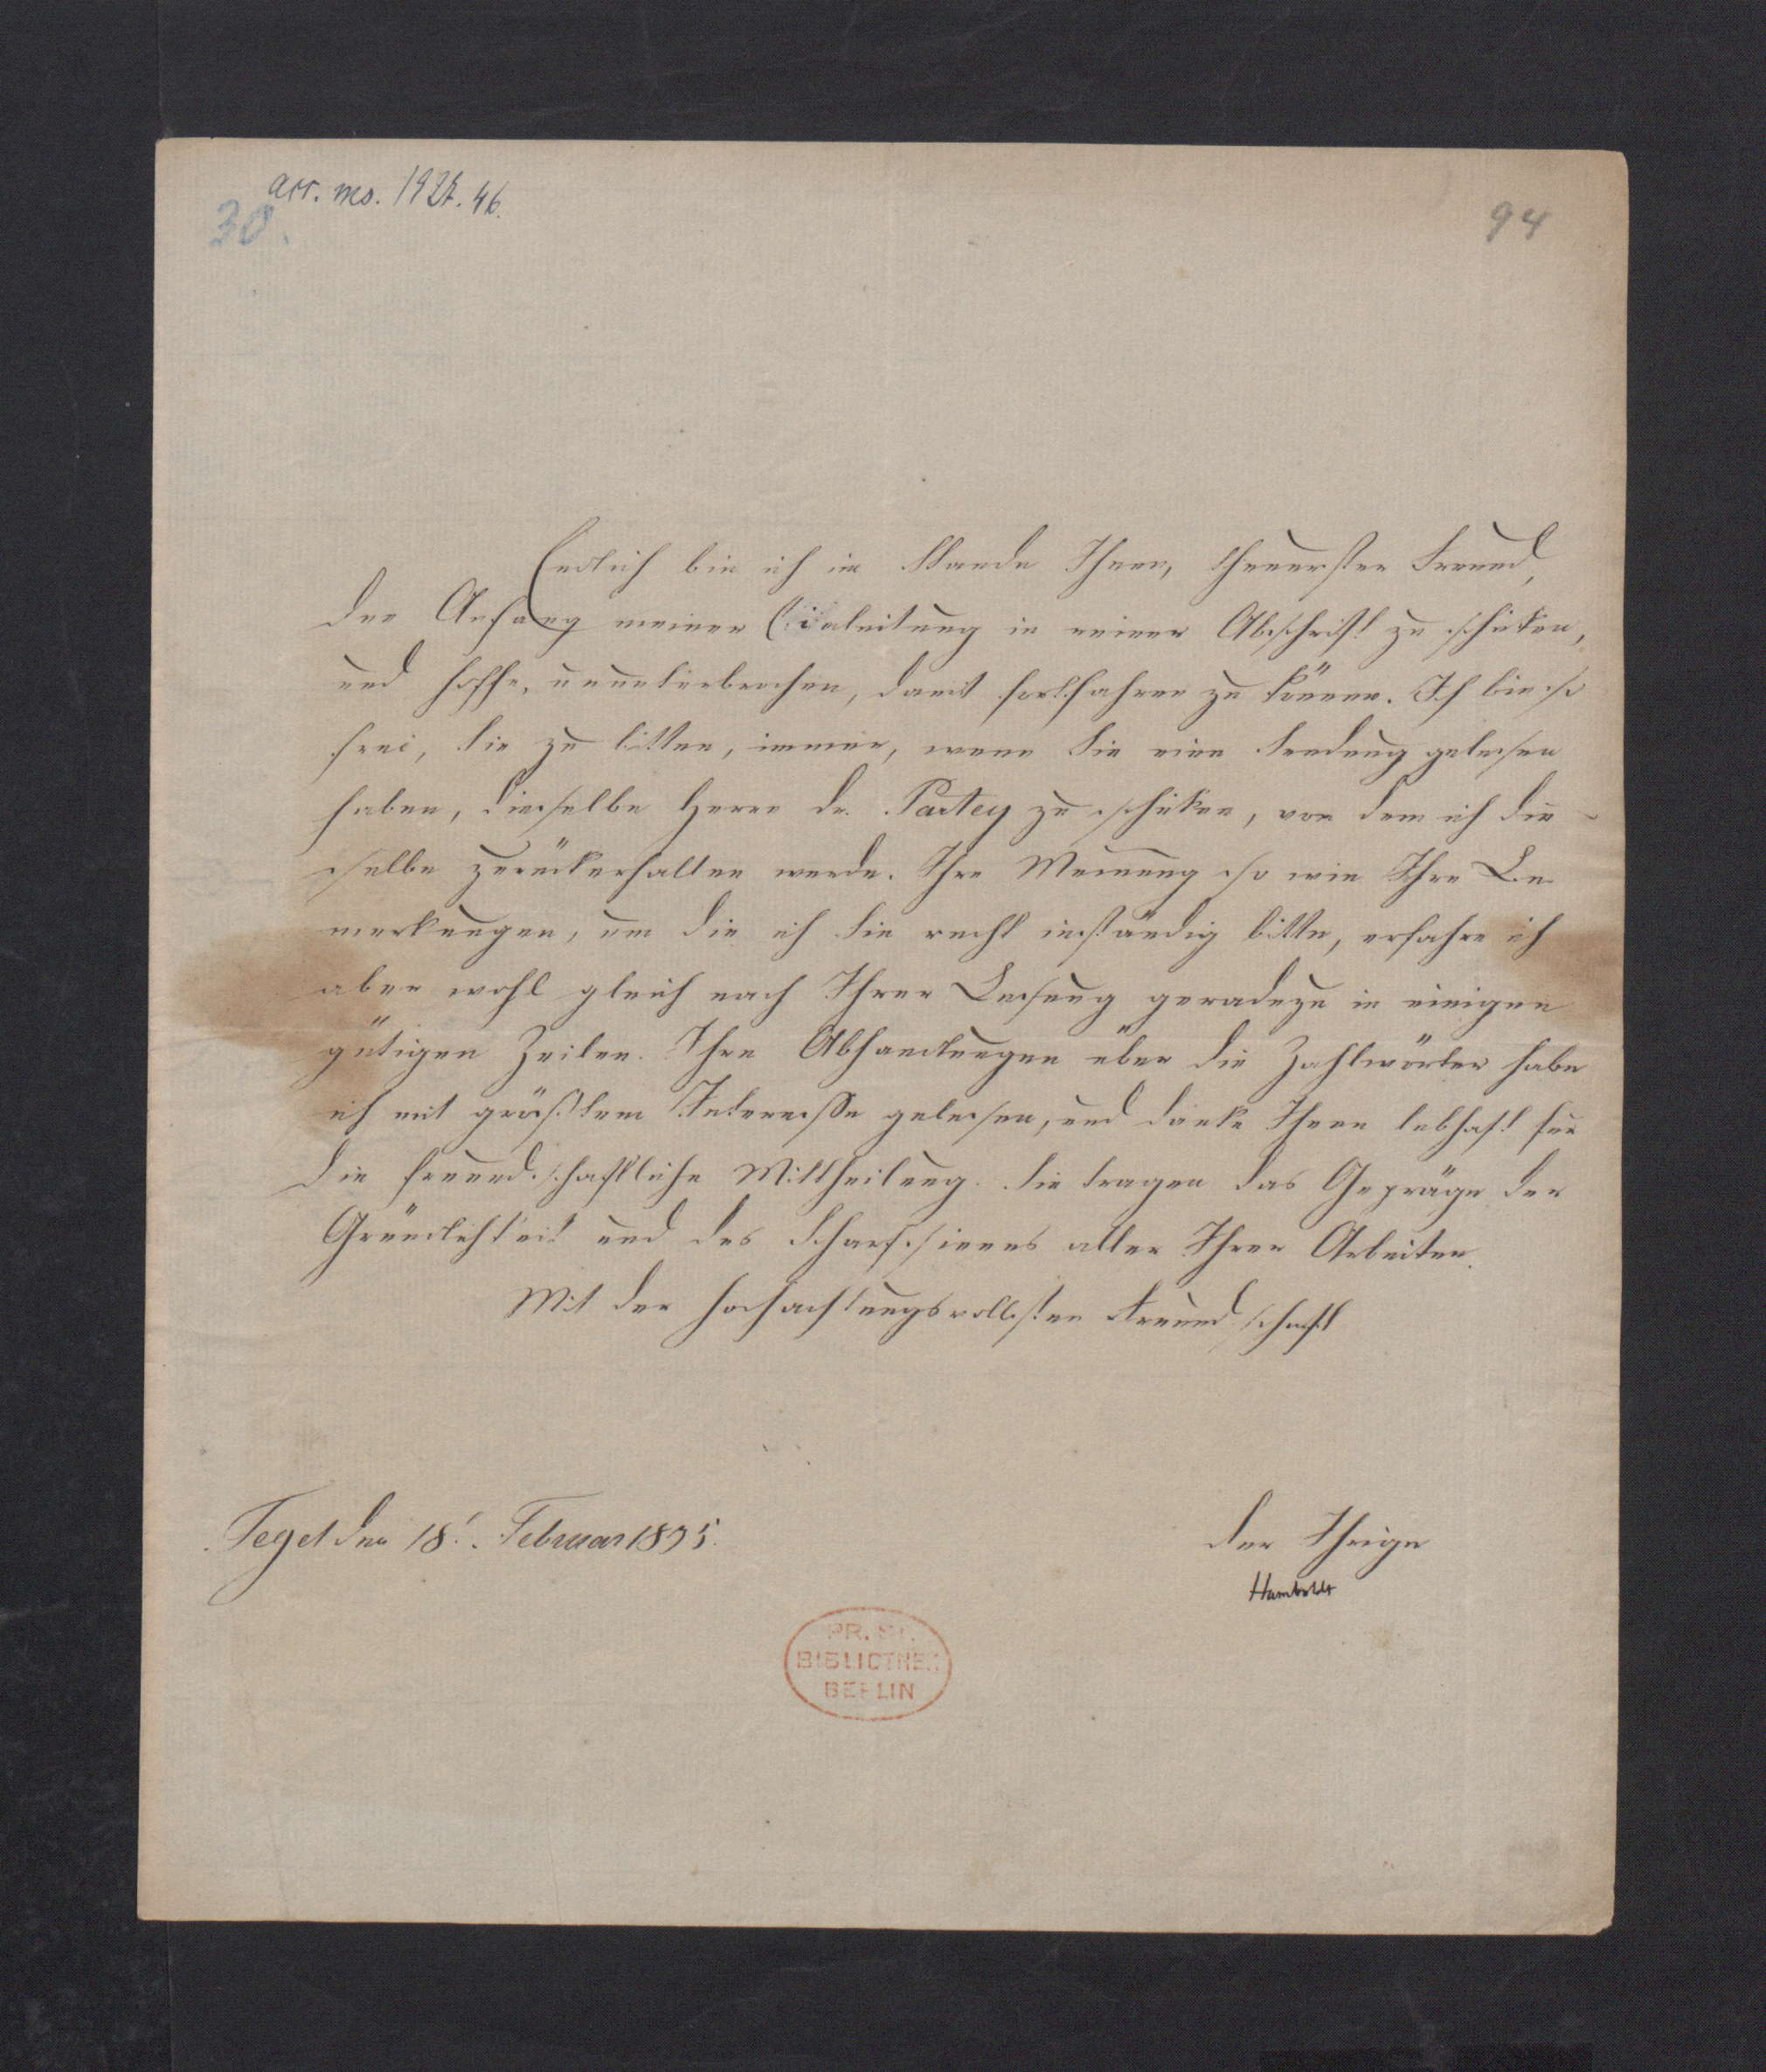 acc. ms. 1927. 46.
30.
94
Endlich bin ich im Stande Ihnen, theuerster Freund,
den Anfang meiner Einleitung in reiner Abschrift zu schicken,
und hoffe, ununterbrochen, damit fortfahren zu können. Ich bin so
frei, Sie zu bitten, immer, wenn Sie eine Sendung gelesen
haben, dieselbe Herrn Dr. Partey zu schicken, von dem ich die-
selbe zurückerhalten werde. Ihre Meinung so wie Ihre Be
merkungen, um die ich Sie recht inständig bitte, erfahre ich
aber wohl gleich nach Ihrer Lesung geradezu in einigen
gütigen Zeilen. Ihre Abhandlungen über die Zahlwörter habe
ich mit größtem Interesse gelesen, und danke Ihnen lebhaft für
die freundschaftliche Mittheilung. Sie tragen das Gepräge der
Gründlichkeit und des Scharfsinnes aller Ihrer Arbeiten.
Mit der hochachtungsvollsten Freundschaft
Tegel den 18. Februar 1835.
der Ihrige
Humboldt
PR. ST.
BIBLIOTHEK
BERLIN